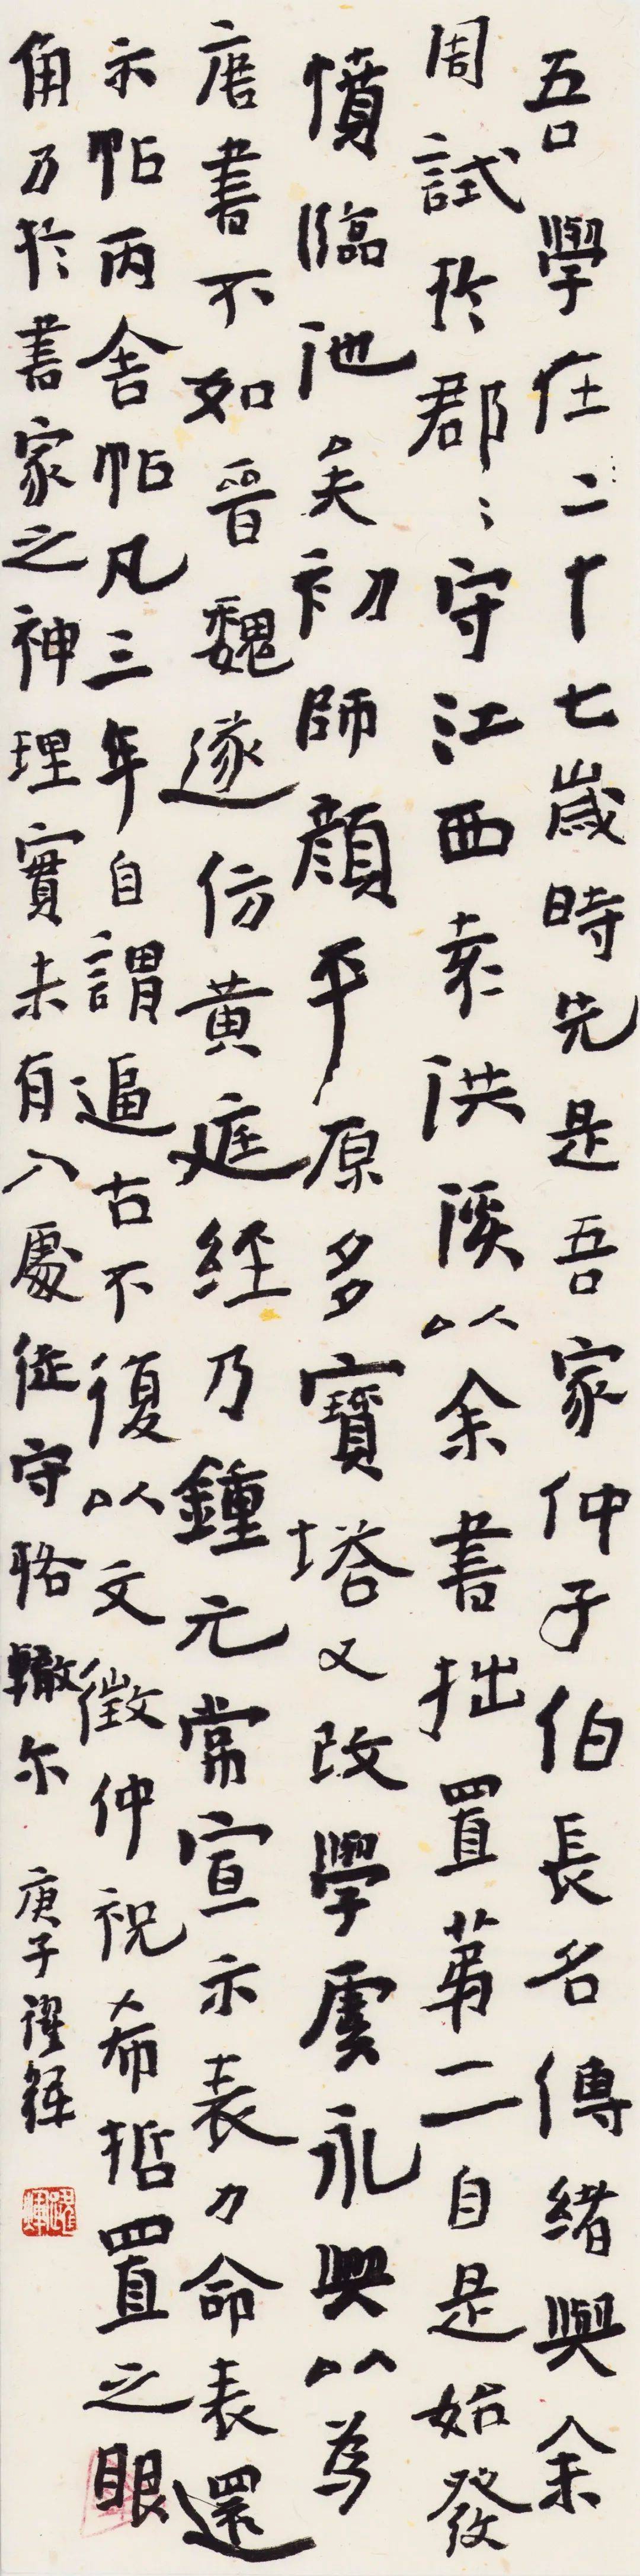 吾學在二十七歲時先是吾家仲子伯長名傳緒與余
周試於郡〻守江西袁洪溪以余書拙置第二自是始發
憤臨池矣初師顏平原多寶塔又改學虞永興以為
唐書不如晉魏遂仿黃庭經乃鍾元常宣示表力命表還
示帖丙舍帖凡三年自謂逼古不復以文徵仲祝希哲置之眼
角乃於書家之神理實未有入處徒守格轍尔
庚子